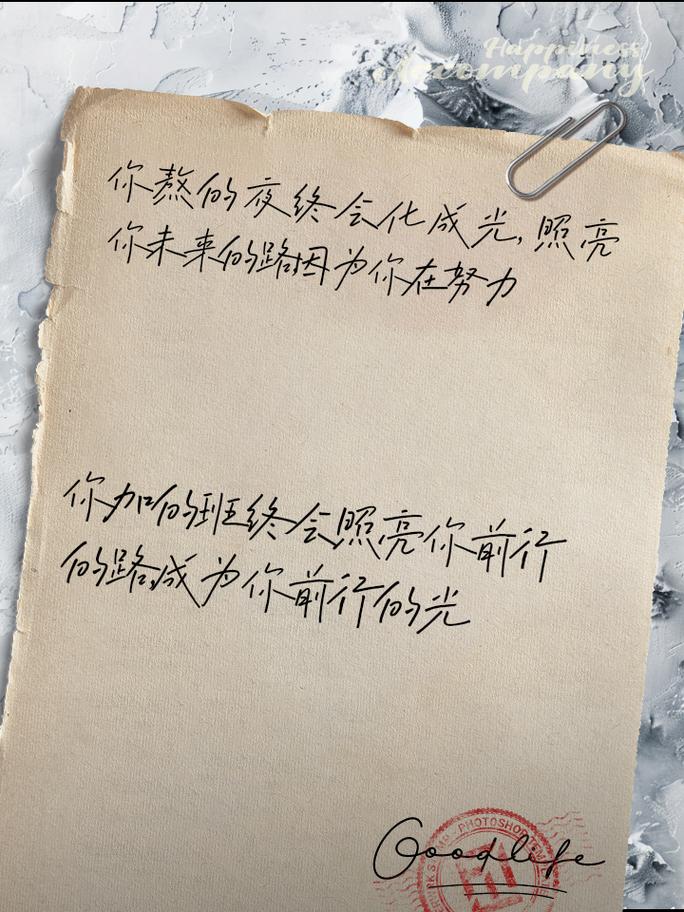 Happiness
Accompany
你熬的夜终会化成光，照亮
你未来的路因为你在努力
你加的班终会照亮你前行
的路,成为你前行的光
PHOTOSHOP
Goodlife